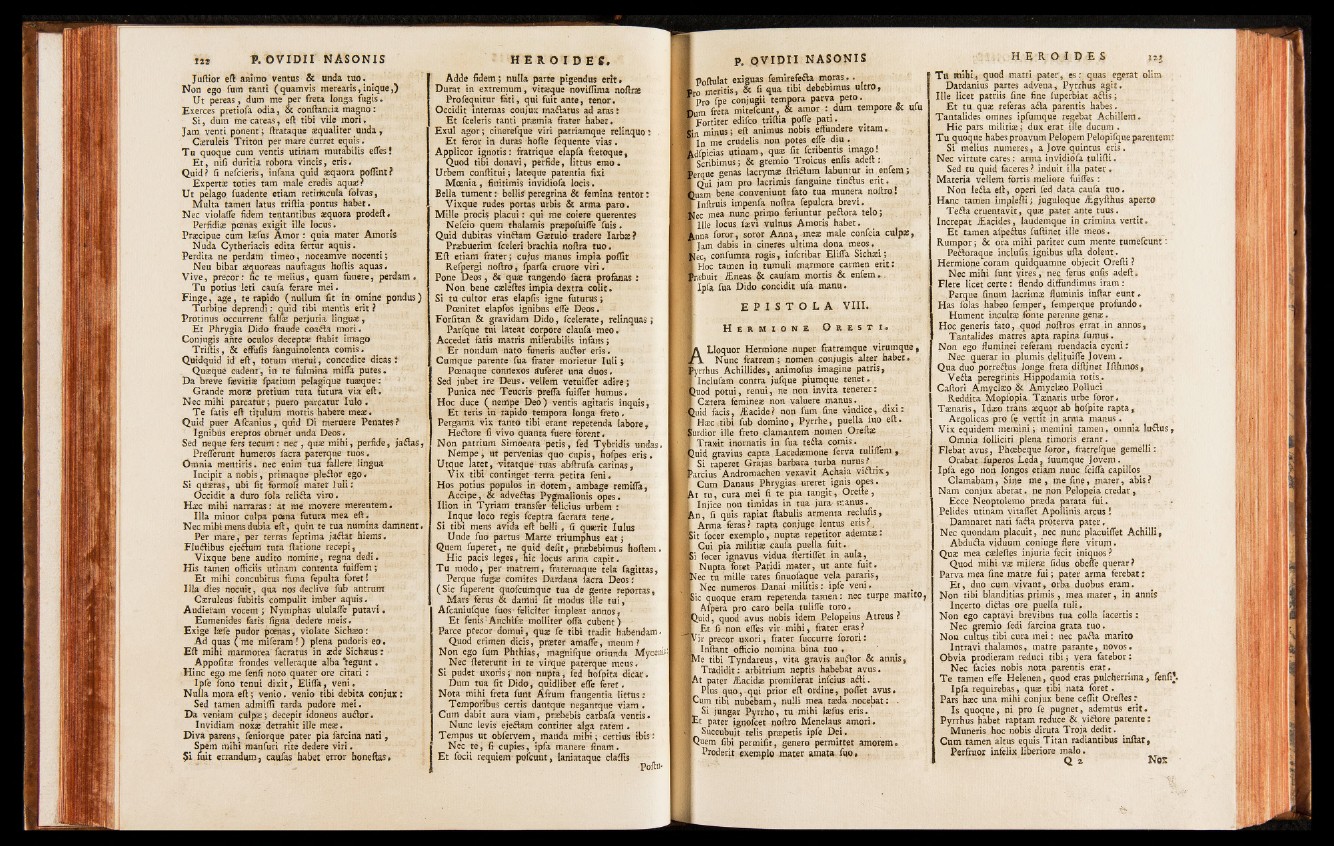 122 P. OVIDII NASONIS
Juſtior eſt animo ventus & unda tuo.
Non ego ſum tanti (quamvis mearais, inique,)
Ut pereas, dum me per freta longa fugis.
Exerces pretioſa odia, & conſtantia magno:
Si, dum me careas, eſt tibi vile mori.
Jam venti ponent; ſtrataque æqualiter unda,
Cæruleis Triton per mare curret equis.
Tu quoque cum ventis utinam mutabilis eſſes!
Et, niſi duritia robora vincis, eris.
Quid? ſi neſcieris, inſana quid æquora poſſint?
Expertæ toties tam male credis aquæ?
Ut pelago ſuadente etiam retinacula ſolvas,
Multa tamen latus triſtia pontus habet.
Nec violaſſe fidem tentantibus æquora prodeſt.
Perfidiæ pœnas exigit ille locus.
Præcipue cum læſus Amor: quia mater Amoris
Nuda Cytheriacis edita fertur aquis.
Perdita ne perdam timeo, noceamve nocenti;
Neu bibat æquoreas naufragus hoſtis aquas.
Vive, precor: ſic te melius, quam funere, perdam.
Tu potius leti cauſa ferare mei.
Finge, age, te rapido (nullum ſit in omine pondus)
Turbine deprendi: quid tibi mentis erit?
Protinus occurrent falſæ perjuria linguæ,
Et Phrygia Dido fraude coacta mori.
Conjugis ante oculos deceptæ ſtabit imago
Triſtis, & effuſis ſanguinolenta comis.
Quidquid id eſt, totum merui, concedite dicas:
Quæque cadent, in te fulmina miſſa putes.
Da breve ſævitiæ ſpatium pelagique tuæque:
Grande moræ pretium tuta futura via eſt.
Nec mihi parcatur; puero parcatur Iulo.
Te ſatis eſt titulum mortis habere meæ.
Quid puer Aſcanius, quid Di meruere Penates?
Ignibus ereptos obruet unda Deos.
Sed neque fers tecum: nec, quæ mihi, perfide, jactas,
Preſſerunt humeros ſacra paterque tuos.
Omnia mentiris. nec enim tua fallere lingua
Incipit a nobis, primaque plector ego.
Si quæras, ubi ſit formoſi mater Iuli:
Occidit a duro ſola relicta viro.
Hæc mihi narraras: at me movere merentem.
Illa minor culpa pœna futura mea eſt.
Nec mihi mens dubia eſt, quin te tua numina damnent.
Per mare, per terras ſeptima jactat hiems.
Fluctibus ejectum tuta ſtatione recepi,
Vixque bene audito nomine, regna dedi.
His tamen officiis utinam contenta fuiſſem;
Et mihi concubitus fama ſepulta foret!
Illa dies nocuit, qua nos declive ſub antrum
Cæruleus ſubitis compulit imber aquis.
Audieram vocem; Nymphas ululaſſe putavi.
Eumenides fatis ſigna dedere meis.
Exige læſe pudor pœnas, violate Sichæo:
Ad quas (me miſeram!) plena pudoris eo.
Eſt mihi marmorea ſacratus in æde Sichæus:
Appoſitæ frondes velleraque alba tegunt.
Hinc ego me ſenſi noto quater ore citari:
Ipſe ſono tenui dixit, Eliſſa, veni.
Nulla mora eſt; venio. venio tibi debita conjux:
Sed tamen admiſſi tarda pudore mei.
Da veniam culpæ; decepit idoneus auctor.
Invidiam noxæ detrahit ille meæ.
Diva parens, ſeniorque pater pia ſarcina nati,
Spem mihi manſuri rite dedere viri.
Si fuit errandum, cauſas habet error honeſtas,
HEROIDES.
Adde fidem; nulla parte pigendus erit.
Durat in extremum, vitæque noviſſima noſtræ
Proſequitur fati, qui fuit ante, tenor.
Occidit internas conjux mactatus ad aras:
Et ſceleris tanti præmia frater habet.
Exul agor; cinereſque viri patriamque relinquo:
Et feror in duras hoſte ſequente vias.
Applicor ignotis: fratrique elapſa fretoque,
Quod tibi donavi, perfide, littus emo.
Urbem conſtitui; lateque patentia fixi
Mœnia, finitimis invidioſa locis.
Bella tument: bellis peregrina & femina tentor:
Vixque rudes portas urbis & arma paro.
Mille procis placui: qui me coiere querentes
Neſcio quem thalamis præpoſuiſſe ſuis.
Quid dubitas vinctam Gætulo tradere Iarbæ?
Præbuerim ſceleri brachia noſtra tuo.
Eſt etiam frater; cujus manus impia poſſit
Reſpergi noſtro, ſparſa cruore viri.
Pone Deos, & quæ tangendo ſacra profanas:
Non bene cæleſtes impia dextra colit.
Si tu cultor eras elapſis igne futurus;
Pœnitet elapſos ignibus eſſe Deos.
Forſitan & gravidam Dido, ſcelerate, relinquas;
Parſque tui lateat corpore clauſa meo.
Accedet fatis matris miſerabilis infans;
Et nondum nato funeris auctor eris.
Cumque parente ſua frater morietur Iuli;
Pœnaque connexos auferet una duos.
Sed jubet ire Deus. vellem vetuiſſet adire;
Punica nec Teucris preſſa fuiſſet humus.
Hoc duce (nempe Deo) ventis agitaris iniquis,
Et teris in rapido tempora longa freto.
Pergama vix tanto tibi erant repetenda labore,
Hectore ſi vivo quanta fuere forent.
Non patrium Simoenta petis, ſed Tybridis undas.
Nempe, ut pervenias quo cupis, hoſpes eris.
Utque latet, vitatque tuas abſtruſa carinas,
Vix tibi continget terra petita ſeni.
Hos potius populos in dotem, ambage remiſſa,
Accipe, & advectas Pygmalionis opes.
Ilion in Tyriam transfer felicius urbem:
Inque loco regis ſceptra ſacrata tene.
Si tibi mens avida eſt belli, ſi quærit Iulus
Unde ſuo partus Marte triumphus eat;
Quem ſuperet, ne quid deſit, præbebimus hoſtem.
Hic pacis leges, hic locus arma capit.
Tu modo, per matrem, fraternaque tela ſagittas,
Perque fugæ comites Dardana ſacra Deos:
(Sic ſuperent quoſcumque tua de gente reportas,
Mars ferus & damni ſit modus ille tui,
Aſcaniuſque ſuos feliciter impleat annos,
Et ſenis Anchiſæ molliter oſſa cubent)
Parce precor domui, quæ ſe tibi tradit habendam.
Quod crimen dicis, præter amaſſe, meum?
Non ego ſum Phthias, magniſque oriunda Mycenis:
Nec ſteterunt in te virque paterque meus.
Si pudet uxoris; non nupta, ſed hoſpita dicar.
Dum tua ſit Dido, quidlibet eſſe feret.
Nota mihi freta ſunt Afrum frangentia littus:
Temporibus certis dantque negantque viam.
Cum dabit aura viam, præbebis carbaſa ventis.
Nunc levis ejectam continet alga ratem.
Tempus ut obſervem, manda mihi; certius ibis:
Nec te, ſi cupies, ipſa manere ſinam.
Et ſocii requiem poſcunt, laniataque claſſis
Poſtu-
P. OVIDII NASONIS
Poſtulat exiguas ſemirefecta moras.
Pro meritis, & ſi qua tibi debebimus ultro,
Pro ſpe conjugii tempora parva peto.
Dum freta miteſcunt, & amor: dum tempore & uſu
Fortiter ediſco triſtia poſſe pati.
Sin minus; eſt animus nobis effundere vitam.
In me crudelis non potes eſſe diu.
Adſpicias utinam, quæ ſit ſcribentis imago!
Scribimus; & gremio Troicus enſis adeſt:
Perque genas lacrymæ ſtrictum labuntur in enſem;
Qui jam pro lacrimis ſanguine tinctus erit.
Quam bene conveniunt fato tua munera noſtro!
Inſtruis impenſa noſtra ſepulcra brevi.
Nec mea nunc primo feriuntur pectora telo;
Ille locus ſævi vulnus Amoris habet.
Anna ſoror, ſoror Anna, meæ male conſcia culpæ,
Jam dabis in cineres ultima dona meos.
Nec, conſumta rogis, inſcribar Eliſſa Sichæi;
Hoc tamen in tumuli marmore carmen erit:
Præbuit Æneas & cauſam mortis & enſem.
Ipſa ſua Dido concidit uſa manu.
EPISTOLA VIII.
HERMIONE ORESTI.
ALloquor Hermione nuper fratremque virumque,
Nunc fratrem; nomen conjugis alter habet.
Pyrrhus Achillides, animoſus imagine patris,
Incluſam contra juſque piumque tenet.
Quod potui, renui, ne non invita tenerer:
Cætera femineæ non valuere manus.
Quid facis, Æacide? non ſum ſine vindice, dixi:
Hæc tibi ſub domino, Pyrrhe, puella ſuo eſt.
Surdior ille freto clamantem nomen Oreſtæ
Traxit inornatis in ſua tecta comis.
Quid gravius capta Lacedæmone ſerva tuliſſem,
Si raperet Grajas barbara turba nurus?
Parcius Andromachen vexavit Achaia victrix,
Cum Danaus Phrygias ureret ignis opes.
At tu, cura mei ſi te pia tangit, Oreſte,
Injice non timidas in tua jura manus.
An, ſi quis rapiat ſtabulis armenta recluſis,
Arma feras? rapta conjuge lentus eris?
Sit ſocer exemplo, nuptæ repetitor ademtæ:
Cui pia militiæ cauſa puella fuit.
Si ſocer ignavus vidua ſtertiſſet in aula,
Nupta foret Paridi mater, ut ante fuit.
Nec tu mille rates ſinuoſaque vela pararis,
Nec numeros Danai militis: ipſe veni.
Sic quoque eram repetenda tamen: nec turpe marito,
Aſpera pro caro bella tuliſſe toro.
Quid, quod avus nobis idem Pelopeius Atreus?
Et ſi non eſſes vir mihi, frater eras?
Vir precor uxori, frater ſuccurre ſorori:
Inſtant officio nomina bina tuo.
Me tibi Tyndareus, vita gravis auctor & annis,
Tradidit: arbitrium neptis habebat avus.
At pater Æacidæ promiſerat inſcius acti.
Plus quo, qui prior eſt ordine, poſſet avus.
Cum tibi nubebam, nulli mea tæda nocebat:
Si jungar Pyrrho, tu mihi læſus eris.
Et pater ignoſcet noſtro Menelaus amori.
Succubuit telis præpetis ipſe Dei.
Quem ſibi permiſit, genero permittet amorem.
Proderit exemplo mater amata ſuo,
HEROIDES 123
Tu mihi, quod matri pater, es: quas egerat olim
Dardanius partes advena, Pyrrhus agit.
Ille licet patriis ſine fine ſuperbiat actis;
Et tu quæ referas acta parentis habes.
Tantalides omnes ipſumque regebat Achillem.
Hic pars militiæ; dux erat ille ducum.
Tu quoque habes proavum Pelopem Pelopiſque parentem:
Si melius numeres, a Jove quintus eris.
Nec virtute cares: arma invidioſa tuliſti.
Sed tu quid faceres? induit illa pater.
Materia vellem fortis meliore fuiſſes:
Non lecta eſt, operi ſed data cauſa tuo.
Hanc tamen impleſti; juguloque Ægyſthus aperto
Tecta cruentavit, quæ pater ante tuus.
Increpat Æacides, laudemque in crimina vertit.
Et tamen aſpectus ſuſtinet ille meos.
Rumpor; & ora mihi pariter cum mente tumeſcunt:
Pectoraque incluſis ignibus uſta dolent.
Hermione coram quidquamne objecit Oreſti?
Nec mihi ſunt vires, nec ferus enſis adeſt.
Flere licet certe: flendo diffundimus iram:
Perque ſinum lacrimæ fluminis inſtar eunt.
Has ſolas habeo ſemper, ſemperque profundo.
Hument incultæ fonte perenne genæ.
Hoc generis fato, quod noſtros errat in annos,
Tantalides matres apta rapina ſumus.
Non ego fluminei referam mendacia cycni:
Nec querar in plumis delituiſſe Jovem.
Qua duo porrectus longe freta diſtinet Iſthmos,
Vecta peregrinis Hippodamia rotis.
Caſtori Amyclæo & Amyclæo Polluci
Reddita Mopſopia Tænaris urbe ſoror.
Tænaris, Idæo trans æquor ab hoſpite rapta,
Argolicas pro ſe vertit in arma manus.
Vix equidem memini, memini tamen. omnia luctus,
Omnia ſolliciti plena timoris erant.
Flebat avus, Phœbeque ſoror, fratreſque gemelli:
Orabat ſuperos Leda, ſuumque Jovem.
Ipſa ego non longos etiam nunc ſciſſa capillos
Clamabam, Sine me, me ſine, mater, abis?
Nam conjux aberat. ne non Pelopeia credar,
Ecce Neoptolemo præda parata fui.
Pelides utinam vitaſſet Apollinis arcus!
Damnaret nati facta proterva pater.
Nec quondam placuit, nec nunc placuiſſet Achilli,
Abducta viduum conjuge flere virum.
Quæ mea cæleſtes injuria fecit iniquos?
Quod mihi væ miſeræ ſidus obeſſe querar?
Parva mea ſine matre fui; pater arma ferebat:
Et, duo cum vivant, orba duobus eram.
Non tibi blanditias primis, mea mater, in annis
Incerto dictas ore puella tuli.
Non ego captavi brevibus tua colla lacertis:
Nec gremio ſedi ſarcina grata tuo.
Non cultus tibi cura mei: nec pacta marito
Intravi thalamos, matre parante, novos.
Obvia prodieram reduci tibi; vera fatebor:
Nec facies nobis nota parentis erat.
Te tamen eſſe Helenen, quod eras pulcherrima, ſenſi.
Ipſa requirebas, quæ tibi nata foret.
Pars hæc una mihi conjux bene ceſſit Oreſtes:
Is quoque, ni pro ſe pugnet, ademtus erit.
Pyrrhus habet raptam reduce & victore parente:
Muneris hoc nobis diruta Troja dedit.
Cum tamen altus equis Titan radiantibus inſtat,
Perfruor infelix liberiore malo.
Q 2 Nox